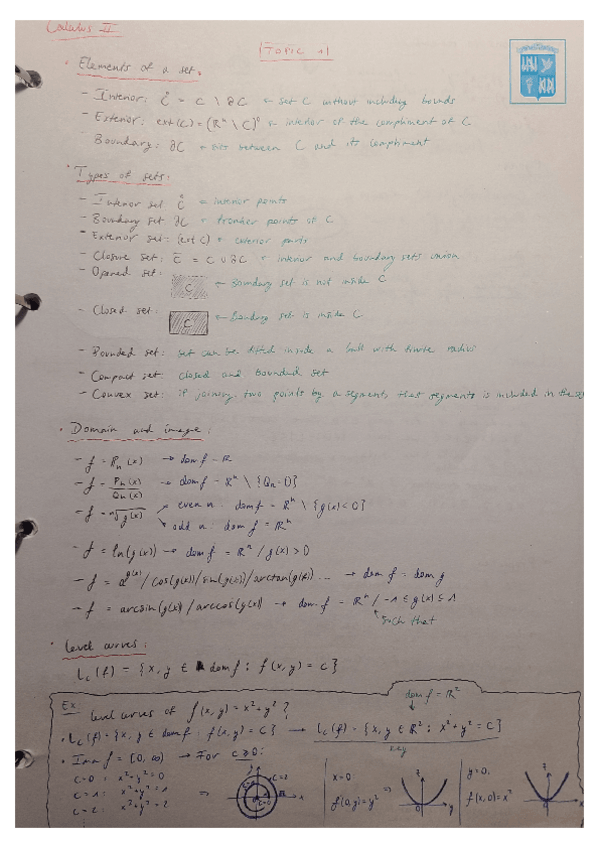 Calculus II
TOPIC 1
· Elements of a set:
- Interior: C̊ = C \ ∂C → set C without including bounds
- Exterior: ext(C) = (ℝⁿ \ C)° → interior of the compliment of C
- Boundary: ∂C → between C and its compliment
· Types of sets:
- Interior set C̊ → interior points
- Boundary set ∂C → frontier points of C
- Exterior set: (ext C) → exterior parts
- Closure set: C̄ = C ∪ ∂C → interior and boundary sets union
- Opened set:
C ← boundary set is not inside C
- Closed set:
C ← boundary set is inside C
- Bounded set: set can be fitted inside a ball with finite radius
- Compact set: closed and bounded set
- Convex set: if joining two points by a segments that segments is included in the
· Domain and image:
- f = Pₙ(x) → dom f = ℝ
- f = Pₙ(x)/Qₙ(x) → dom f = ℝⁿ \ {Qₙ = 0}
- f = ⁿ√g(x) → even n: dom f = ℝⁿ \ {g(x) < 0}
→ odd n: dom f = ℝⁿ
- f = ln(g(x)) → dom f = ℝⁿ / g(x) > 0
- f = a^g(x) / cos(g(x)) / sin(g(x)) / arctan(g(x)) ... → dom f = dom g
- f = arcsin(g(x)) / arccos(g(x)) → dom f = ℝⁿ / -1 ≤ g(x) ≤ 1
such that
· Level curves:
L_c(f) = {x, y ∈ dom f : f(x, y) = C}
dom f = ℝ²
Ex: level curves of f(x, y) = x² + y² ?
· L_c(f) = {x, y ∈ dom f : f(x, y) = C} → L_c(f) = {x, y ∈ ℝ² : x² + y² = C}
· Im f = [0, ∞) → For C ≥ 0:
C=0: x² + y² = 0
C=1: x² + y² = 1
C=2: x² + y² = 2
⇒
C=2
x
x=0:
f(0,y) = y² ⇒
z
0
y
y=0:
f(x,0) = x²
z
0
x